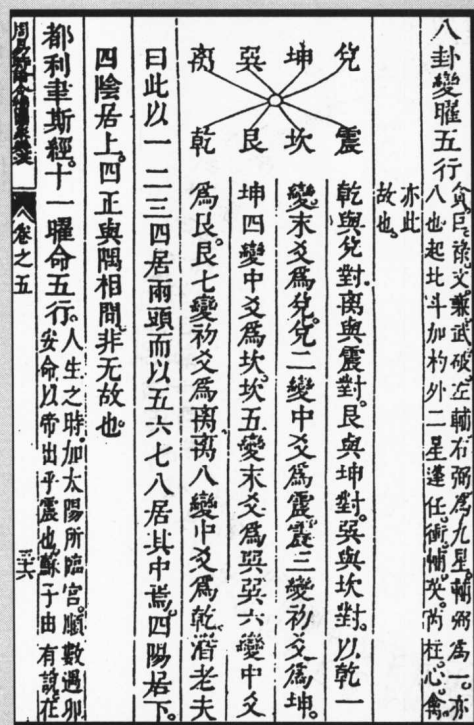 八卦變曜五行
貪巨祿文廉武破左輔右弼為九星。輔弼為一。亦
八也起北斗加杓外二星蓬任。衝輔英。芮柱。心。禽。
亦此
故也。
兌 坤 巽 离
震 坎 艮 乾
乾與兌對。离與震對。艮與坤對。巽與坎對。以乾一
變。末爻爲兌。兌二變中爻爲震。震三變初爻爲坤。
坤四變中爻爲坎。坎五變末爻爲巽。巽六變中爻
爲艮。艮七變初爻爲离。离八變中爻爲乾。潛老夫
曰此以一二三四居兩頭而以五六七八居其中焉。四陽居下。
四陰居上。四正與隅相間。非无故也。
都利聿斯經。十一曜命五行。
人生之時。加太陽所臨宮。順數遇卯
安命以帝出乎震也。蘇子由有說。在
卷之五
三六